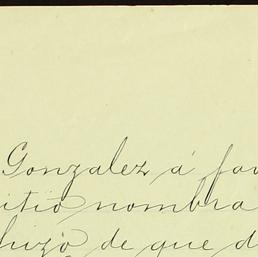 Gonzalez á fav
itio nombra
hizo de que d